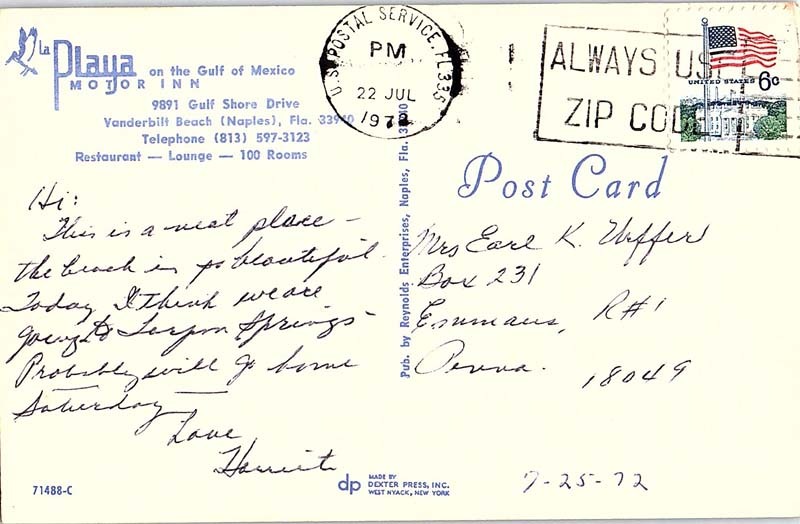 La Playa on the Gulf of Mexico
MOTOR INN
9891 Gulf Shore Drive
Vanderbilt Beach (Naples), Fla. 33940
Telephone (813) 597-3123
Restaurant — Lounge — 100 Rooms
U.S. POSTAL SERVICE, FL 335
PM
22 JUL
1972
ALWAYS USE
ZIP CODE
UNITED STATES 6c
Post Card
Hi:
This is a neat place -
the beach is so beautiful.
Today I think we are
going to Tarpon Springs -
Probably will go home
Saturday
Love
Harriet
Pub. by Reynolds Enterprises, Naples, Fla. 33940
Mrs Earl K. Urffer
Box 231
Emmaus, R#1
Penna. 18049
71488-C
dp MADE BY
DEXTER PRESS, INC.
WEST NYACK, NEW YORK
7-25-72